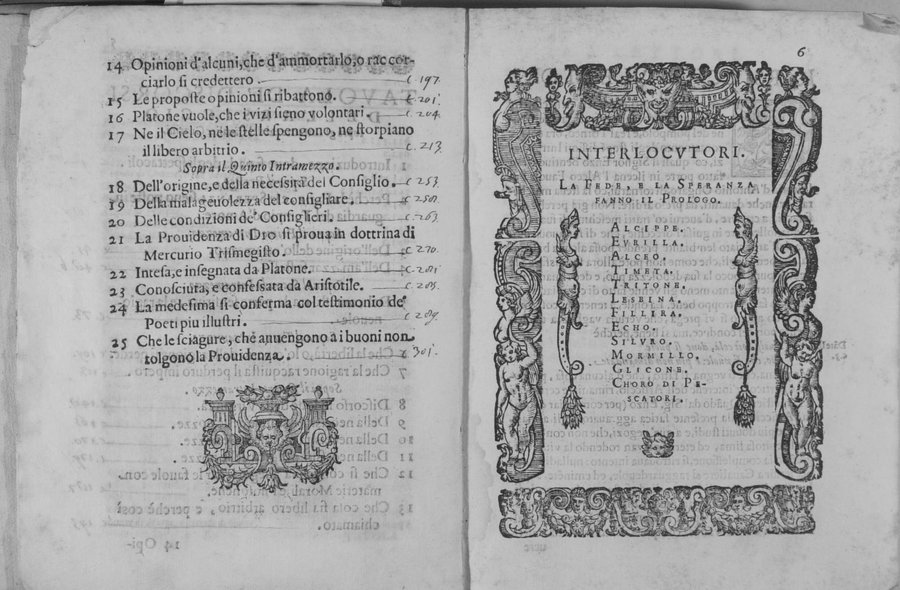 14 Opinioni d'alcuni, che d'ammortarlo, o raccor-
ciarlo si credettero. c. 197.
15 Le proposte opinioni si ribattono. c. 201.
16 Platone vuole, che i vizi sieno volontari. c. 204.
17 Ne il Cielo, ne le stelle spengono, ne storpiano
il libero arbitrio. c. 213.
Sopra il Quinto Intramezzo.
18 Dell'origine, e della necessità del Consiglio. c. 253.
19 Della malageuolezza del consigliare.
20 Delle condizioni de' Consiglieri. c. 263.
21 La Prouidenza di DIO si proua in dottrina di
Mercurio Trismegisto. c. 270.
22 Intesa, e insegnata da Platone. c. 281
23 Conosciuta, e confessata da Aristotile. c. 285.
24 La medesima si conferma col testimonio de'
Poeti piu illustri. c. 289.
25 Che le sciagure, che auuengono a i buoni non
tolgono la Prouidenza. c. 301.
6
INTERLOCVTORI.
LA FEDE, E LA SPERANZA
FANNO IL PROLOGO.
ALCIPPE.
EVRILLA.
ALCEO.
TIMETA.
TRITONE.
LESBINA.
FILLIRA.
ECHO.
SILVRO.
MORMILLO.
GLICONE.
CHORO DI PE-
SCATORI.